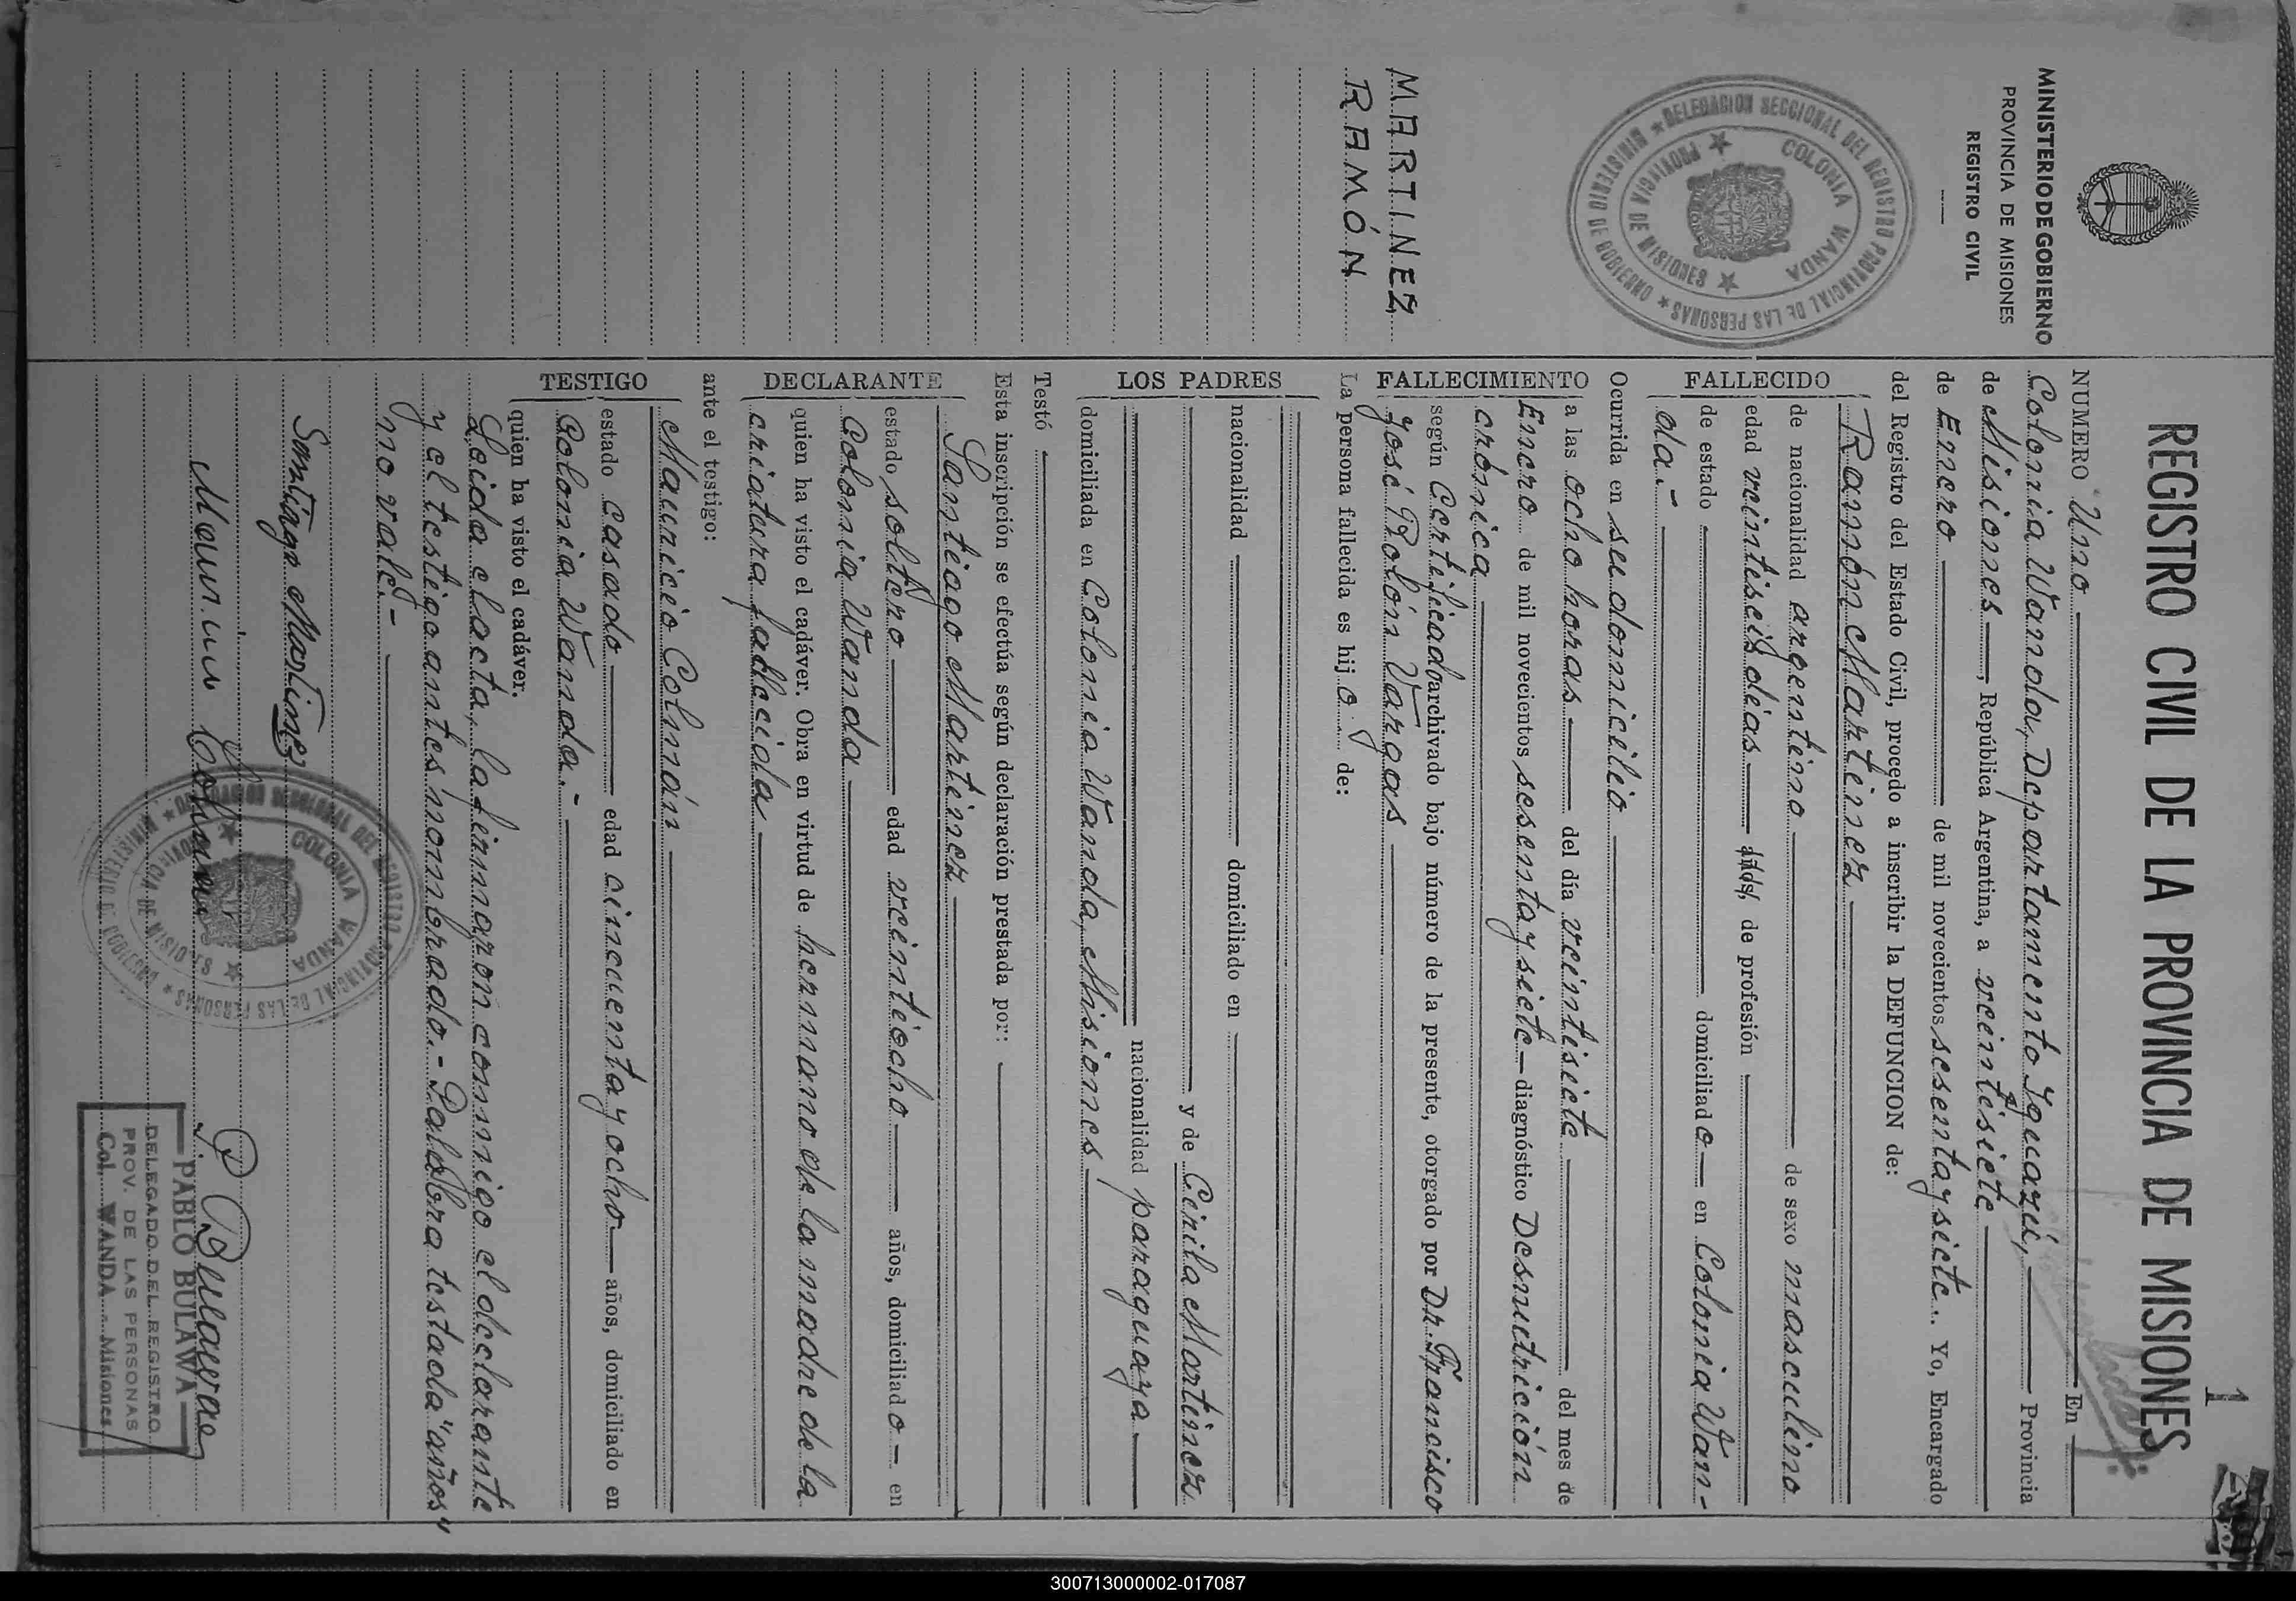 1
REGISTRO CIVIL DE LA PROVINCIA DE MISIONES
MINISTERIO DE GOBIERNO
PROVINCIA DE MISIONES
REGISTRO CIVIL
DELEGACION SECCIONAL DEL REGISTRO PROVINCIAL DE LAS PERSONAS
MINISTERIO DE GOBIERNO
COLONIA WANDA
PROVINCIA DE MISIONES
MARTINEZ
RAMÓN
NUMERO Uno En
Colonia Wanda, Departamento Iguazú, Provincia
de Misiones, República Argentina, a veintisiete
de Enero de mil novecientos sesenta y siete. Yo, Encargado
del Registro del Estado Civil, procedo a inscribir la DEFUNCION de:
FALLECIDO
Ramón Martinez
de nacionalidad argentino de sexo masculino
edad veintiseis dias años, de profesión
de estado domiciliado en Colonia Wan-
da.-
FALLECIMIENTO
Ocurrida en su domicilio
a las ocho horas del día veintisiete del mes de
Enero de mil novecientos sesenta y siete diagnóstico Desnutrición
crónica
según Certificado archivado bajo número de la presente, otorgado por Dr. Francisco
José Rolón Vargas
La persona fallecida es hijo de:
LOS PADRES
nacionalidad domiciliado en
y de Cirila Martinez
nacionalidad paraguaya
domiciliada en Colonia Wanda, Misiones
Testó
Esta inscripción se efectúa según declaración prestada por:
DECLARANTE
Santiago Martinez
estado soltero edad veintiocho años, domiciliado en
Colonia Wanda
quien ha visto el cadáver. Obra en virtud de hermano de la madre de la
criatura fallecida
ante el testigo:
TESTIGO
Mauricio Colmán
estado casado edad cincuenta y ocho años, domiciliado en
Colonia Wanda.-
quien ha visto el cadáver.
Leida el acta, la firmaron conmigo el declarante
y el testigo antes nombrado.- Palabra testada "años"
no vale.-
Santiago Martinez
Colman
COLONIA WANDA
PABLO BULAWA
DELEGADO DEL REGISTRO
PROV. DE LAS PERSONAS
Col. WANDA - Misiones
300713000002-017087